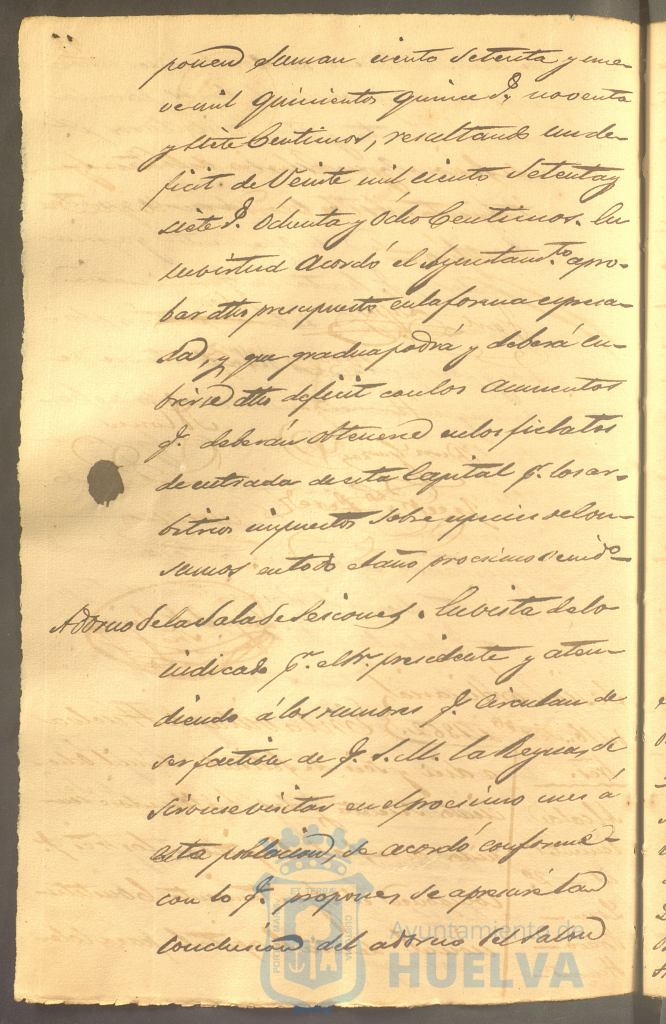 ponen suman ciento setenta y nue-
ve mil quinientos quince r.^s noventa
y siete Centimos, resultando un de-
ficit de Veinte mil ciento Setenta y
siete r.^s Ochenta y Ocho Centimos. En
su virtud Acordó el Ayuntam.^to apro-
bar dho presupuesto en la forma espresa-
da, y que gradua podrá y deberá cu-
brirse dho deficit con los Aumentos
q. deberán obtenerse en los fielatos
de entrada de esta Capital p. los ar-
bitrios impuestos sobre especies de Con-
sumos en todo el año procsimo venid.^o
Adorno de la Sala de Sesiones. En vista de lo
indicado p. el Sr. presidente y aten-
diendo á los rumores q. Circulan de
ser factible de q. S. M. la Reyna, se
sirviese visitar en el procsimo mes á
esta poblacion, se acordó conforme
con lo q. propone, se apresure la
conclusion del adorno del Salon
PORTUS MARIS ET TERRAE CUSTODIA
Ayuntamiento de
HUELVA